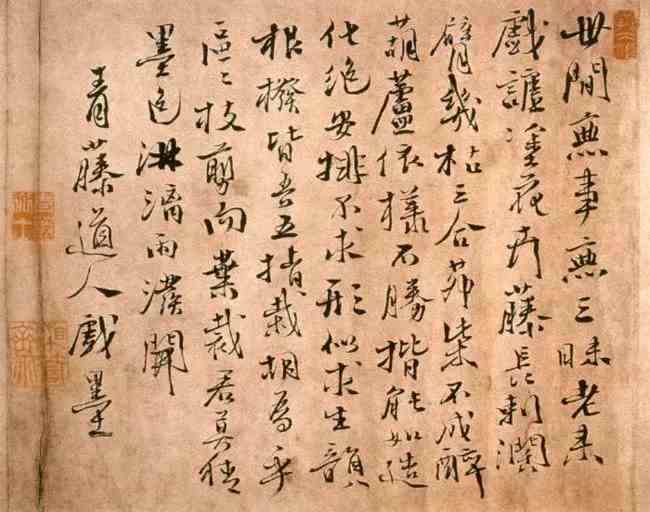 世間無事無三昧老來
戲謔塗花卉藤長刺濶
臂幾枯三合茆柴不成醉
葫蘆依樣不勝揩能如造
化絕安排不求形似求生韻
根撥皆吾五指栽胡為乎
區々枝剪而葉裁君莫猜
墨色淋漓雨潑開
青藤道人戲墨